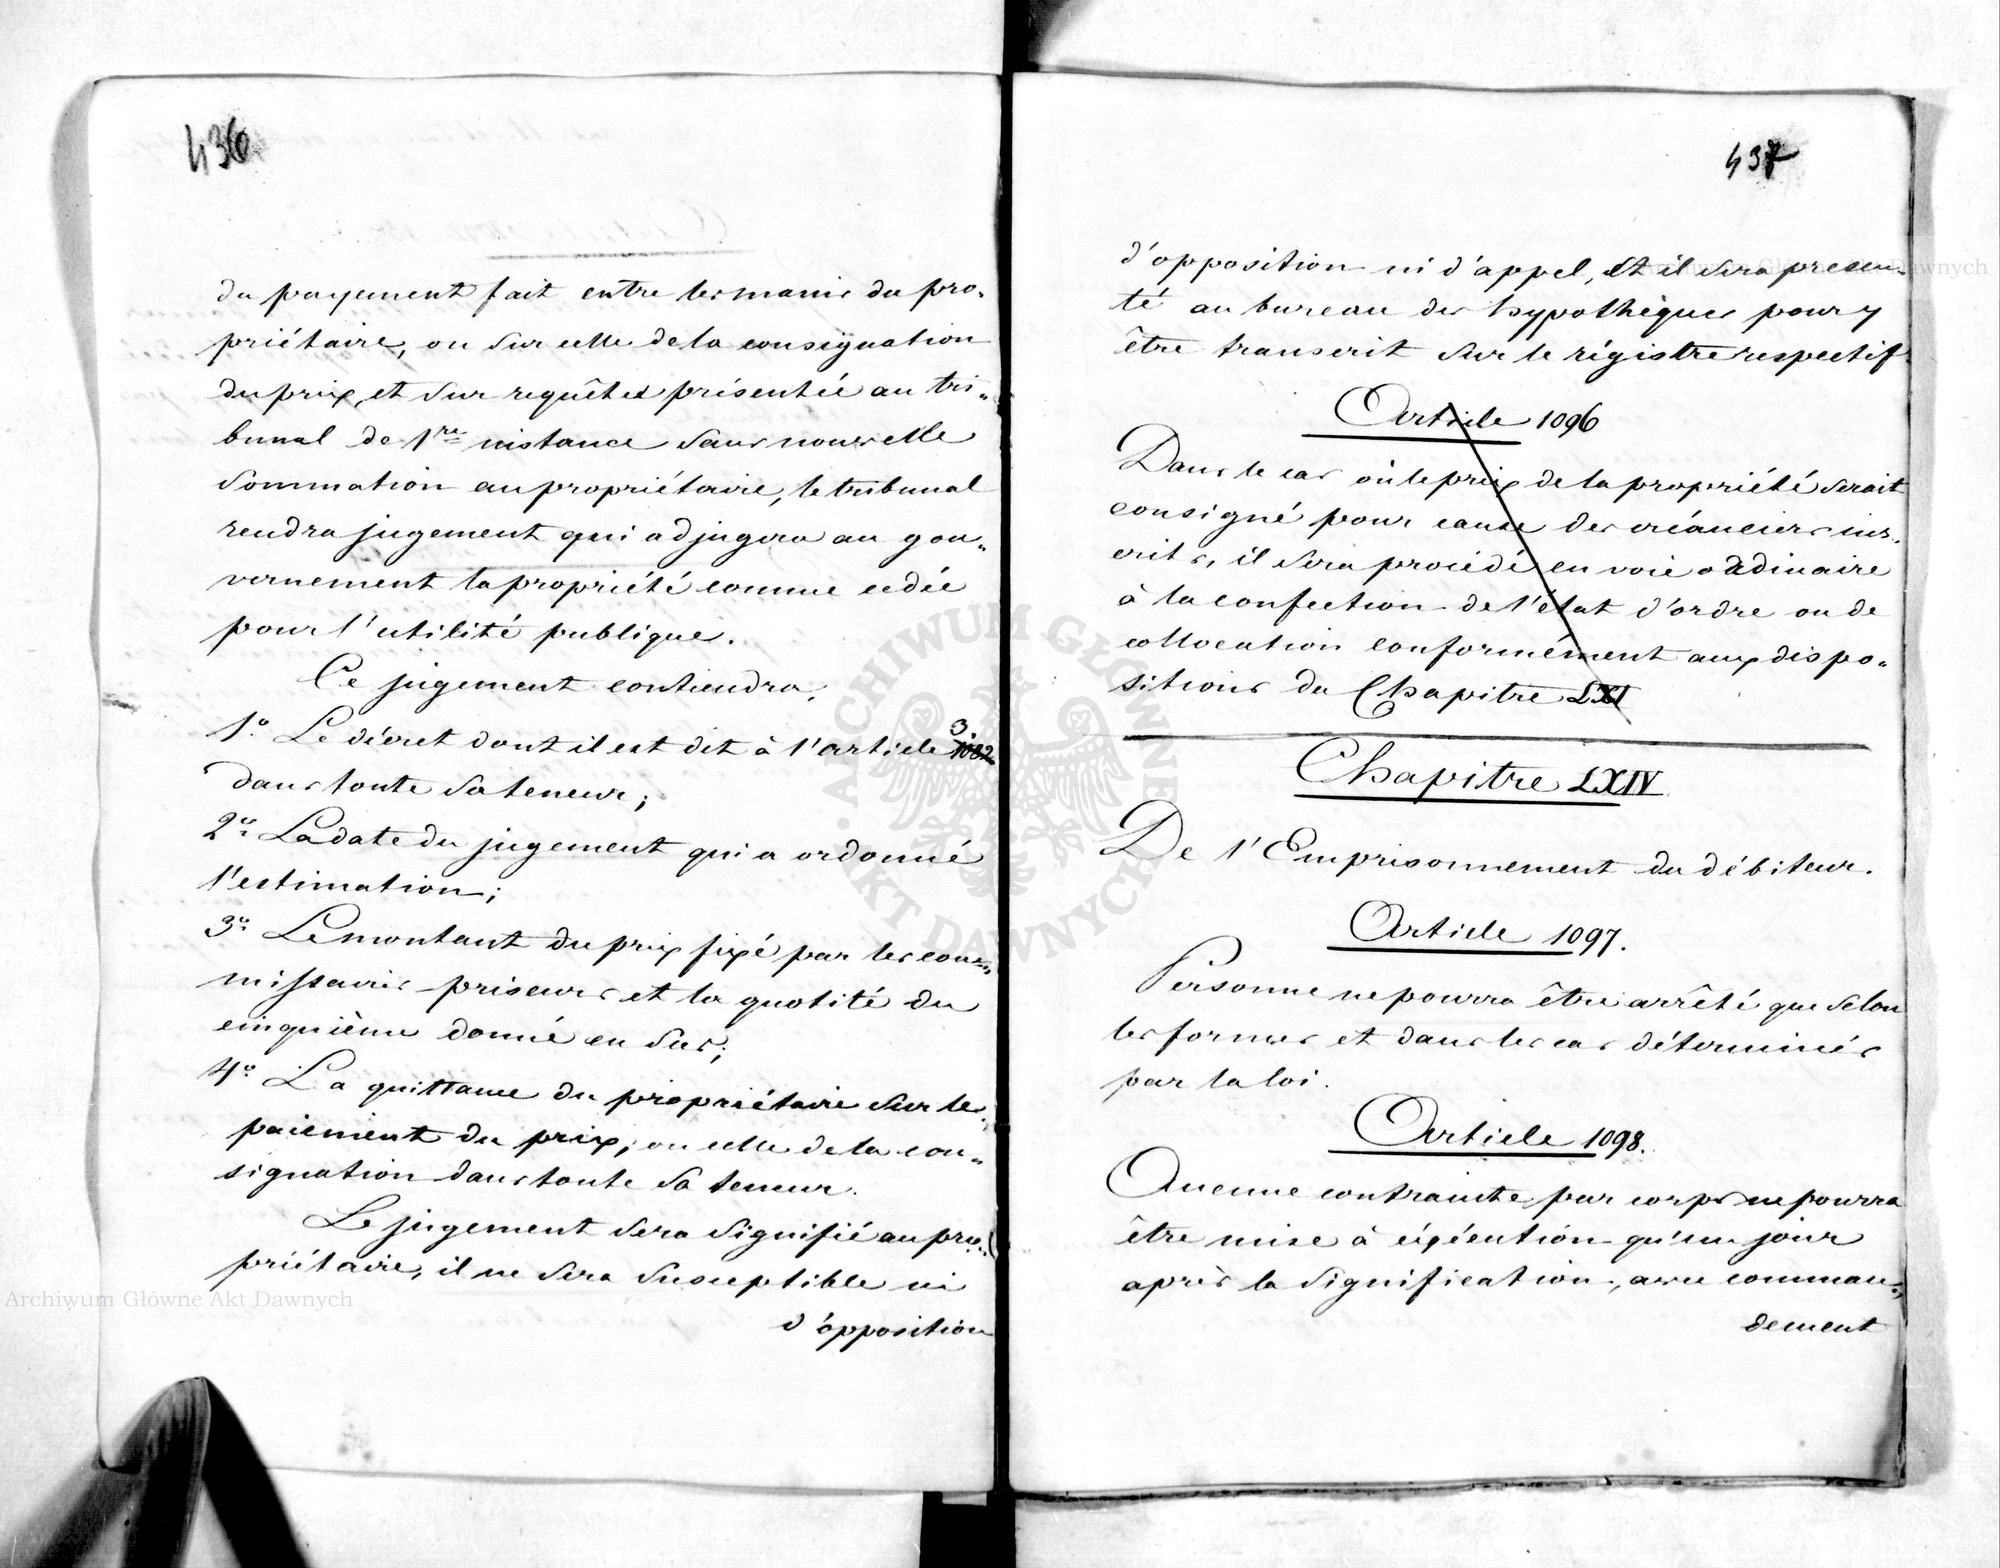 436
du payement fait entre les mains du pro-
priétaire, ou sur celle de la consignation
du prix, et sur requête présentée au tri-
bunal de 1re instance sans nouvelle
sommation au propriétaire, le tribunal
rendra jugement qui adjugera au gou-
vernement la propriété comme cedée
pour l'utilité publique.
Ce jugement contiendra,
1o. Le décret dont il est dit à l'article 1083
dans toute sa teneur;
2o. La date du jugement qui a ordonné
l'estimation;
3o. Le montant du prix fixé par les com-
missaires priseurs et la quotité du
cinquième donné en sus;
4o. La quittance du propriétaire sur le
paiement du prix, ou celle de la con-
signation dans toute sa teneur.
Le jugement sera signifié au pro-
priétaire, il ne sera susceptible ni
d'opposition
437
d'opposition ni d'appel, et il sera présen-
té au bureau des hypothèques pour y
être transcrit sur le régistre respectif.
Article 1096
Dans le cas où le prix de la propriété serait
consigné pour cause des créanciers ins-
crits, il sera procédé en voie ordinaire
à la confection de l'état d'ordre ou de
collocation conformément aux dispo-
sitions du Chapitre LXI
Chapitre LXIV
De l'Emprisonnement du débiteur.
Article 1097.
Personne ne pourra être arrêté que selon
les formes et dans les cas déterminés
par la loi.
Article 1098.
Aucune contrainte par corps ne pourra
être mise à éxécution qu'un jour
après la signification, avec comman-
dement
ARCHIWUM GŁÓWNE AKT DAWNYCH
Archiwum Główne Akt Dawnych
Archiwum Główne Akt Dawnych